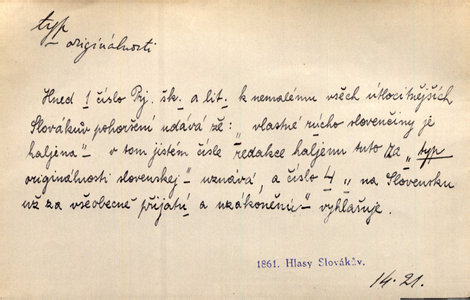 typ
– originálnosti
Hned 1 číslo Prj. šk. a lit. k nemalému všech útlocitnějších
Slovákův pohoršení udává že: „vlastné rúcho slovenčiny je
haljena" v tom jistém čísle redakce haljenu tuto za „typ
originálnosti slovenskej" uznává, a číslo 4 „na Slovensku
už za všeobecně přijatú a uzákoněnú" vyhlašuje.
1861. Hlasy Slovákův.
14.21.